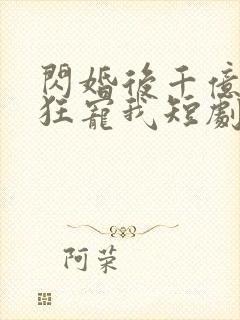 閃婚後千億
狂寵我短劇
阿荣